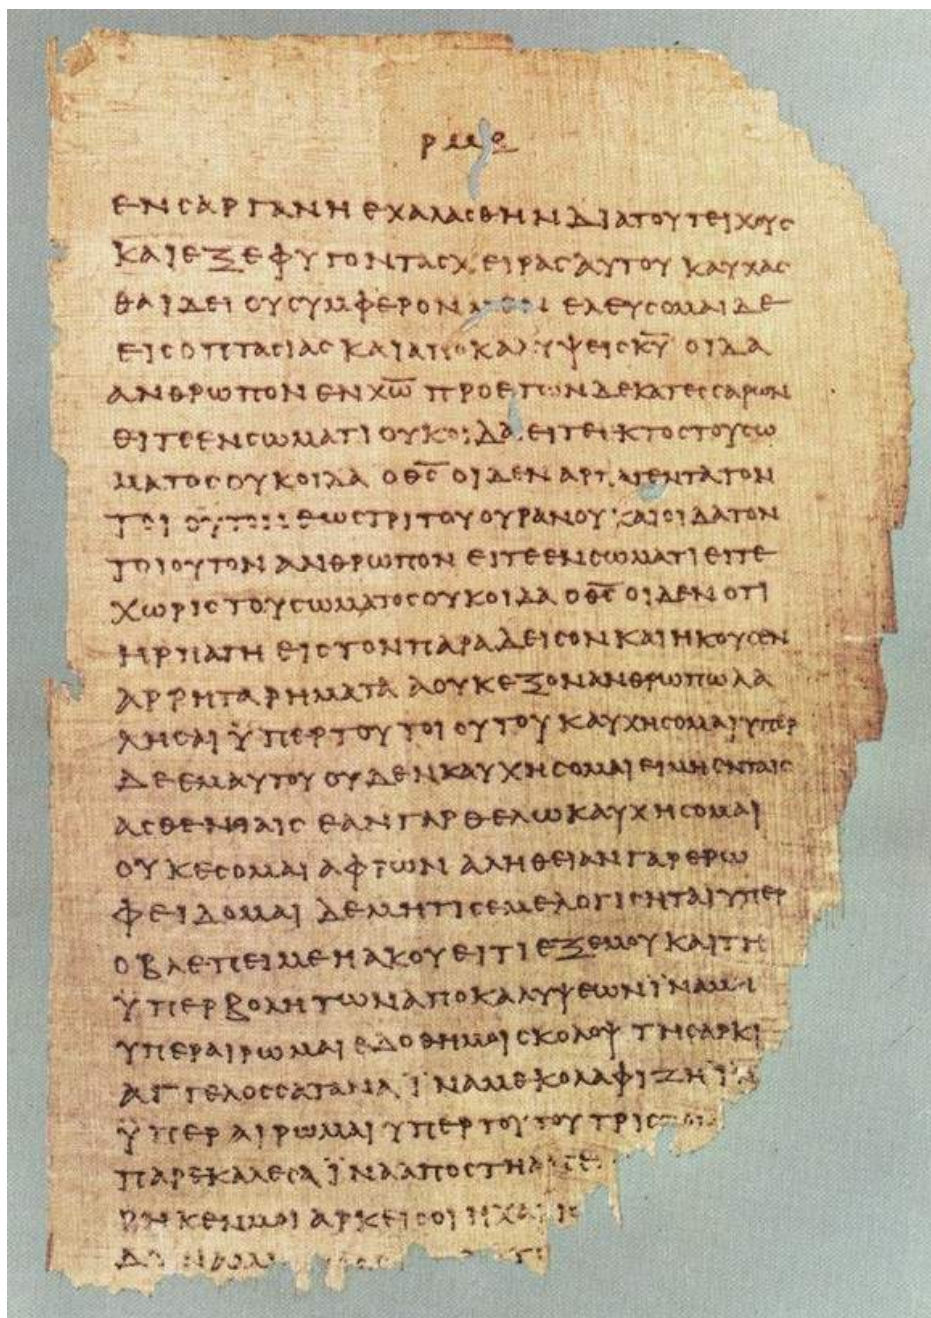 ρμε
ενσαργανηεχαλασθηνδιατουτειχους
καιεξεφυγοντασχειρασαυτουκαυχας
θαιδειουσυμφερονμενελευσομαιδε
εισοπτασιαςκαιαποκαλυψεισκ̅υ̅οιδα
ανθρωπονενχ̅ω̅προετωνδεκατεσσαρων
ειτεενσωματιουκοιδαειτεεκτοστουσω
ματοσουκοιδαοθ̅σ̅οιδεναρπαγεντατον
τοιουτονεωστριτουουρανουκαιοιδατον
τοιουτονανθρωπονειτεενσωματιειτε
χωριστουσωματοσουκοιδαοθ̅σ̅οιδενοτι
ηρπαγηειστονπαραδεισονκαιηκουσεν
αρρηταρηματααουκεξονανθρωπωλα
λησαιϋπερτουτοιουτουκαυχησομαιυπερ
δεεμαυτουουδενκαυχησομαιειμηενταις
ασθενειαισεανγαρθελωκαυχησομαι
ουκεσομαιαφρωναληθειανγαρερω
φειδομαιδεμητισεμελογισηταιυπερ
οβλεπειμεηακουειτιεξεμουκαιτη
ϋπερβολητωναποκαλυψεωνϊναμη
υπεραιρωμαιεδοθημοισκολοψτησαρκι
αγγελοσσαταναϊναμεκολαφιζηϊ
ϋπεραιρωμαιυπερτουτουτρισ
παρεκαλεσαϊνααποστη
ρηκενμοιαρκεισοιηχαρισ